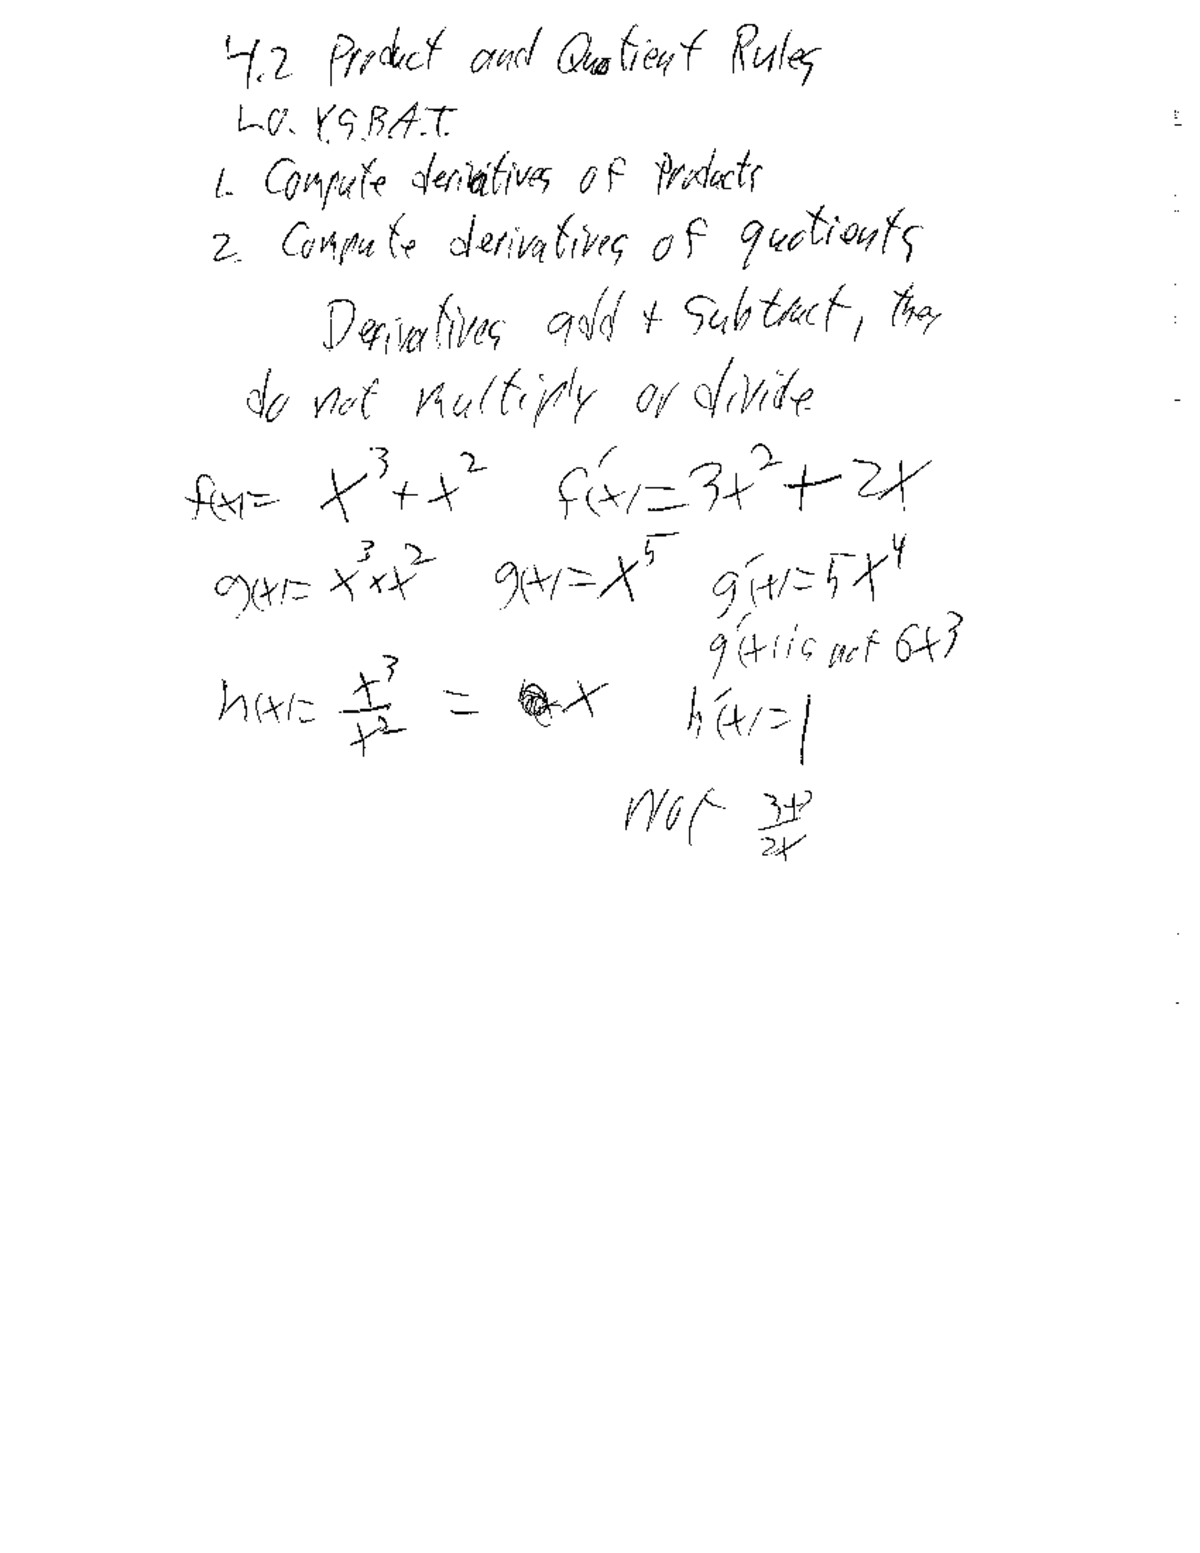 4.2 Product and Quotient Rules
L.O. Y.S.B.A.T.
1. Compute derivatives of Products
2. Compute derivatives of quotients
Derivatives add + Subtract, they
do not multiply or divide
f(x)= x³+x² f'(x)=3x²+2x
g(x)= x³×x² g(x)=x⁵ g'(x)=5x⁴
g'(x) is not 6x3
h(x)= x³/x² = x h'(x)=1
Not 3x²/2x